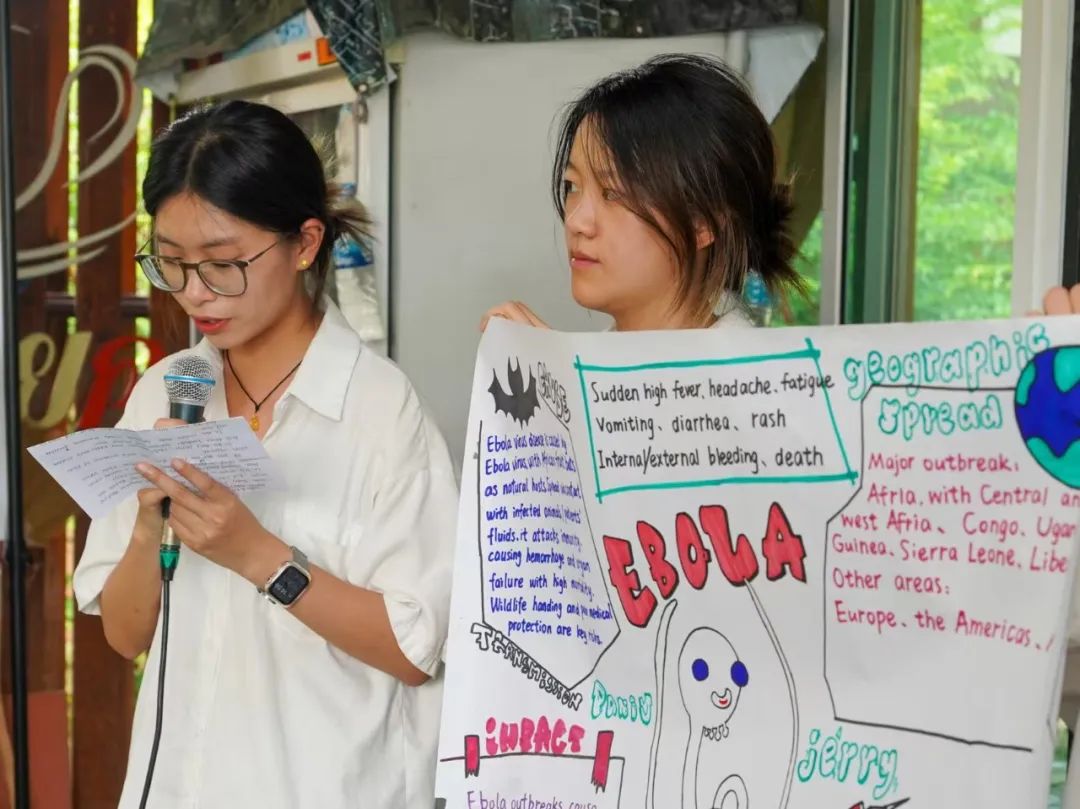 CAUSE
Ebola virus disease is caused by
Ebola virus, with African fruit bats
as natural hosts. Spread via contact
with infected animals / patients'
fluids. it attacks immunity,
causing hemorrhage and organ
failure with high
Wildlife handing and medical
protection are key
TRANSMISSION
Sudden high fever, headache, fatigue
Vomiting, diarrhea, rash
Internal/external bleeding, death
EBOLA
geographic
spread
Major outbreak:
Afria, with Central an
west Afria, Congo, Ugan
Guinea, Sierra Leone, Libe
Other areas:
Europe, the Americas,
impact
Ebola outbreaks cause
jerry